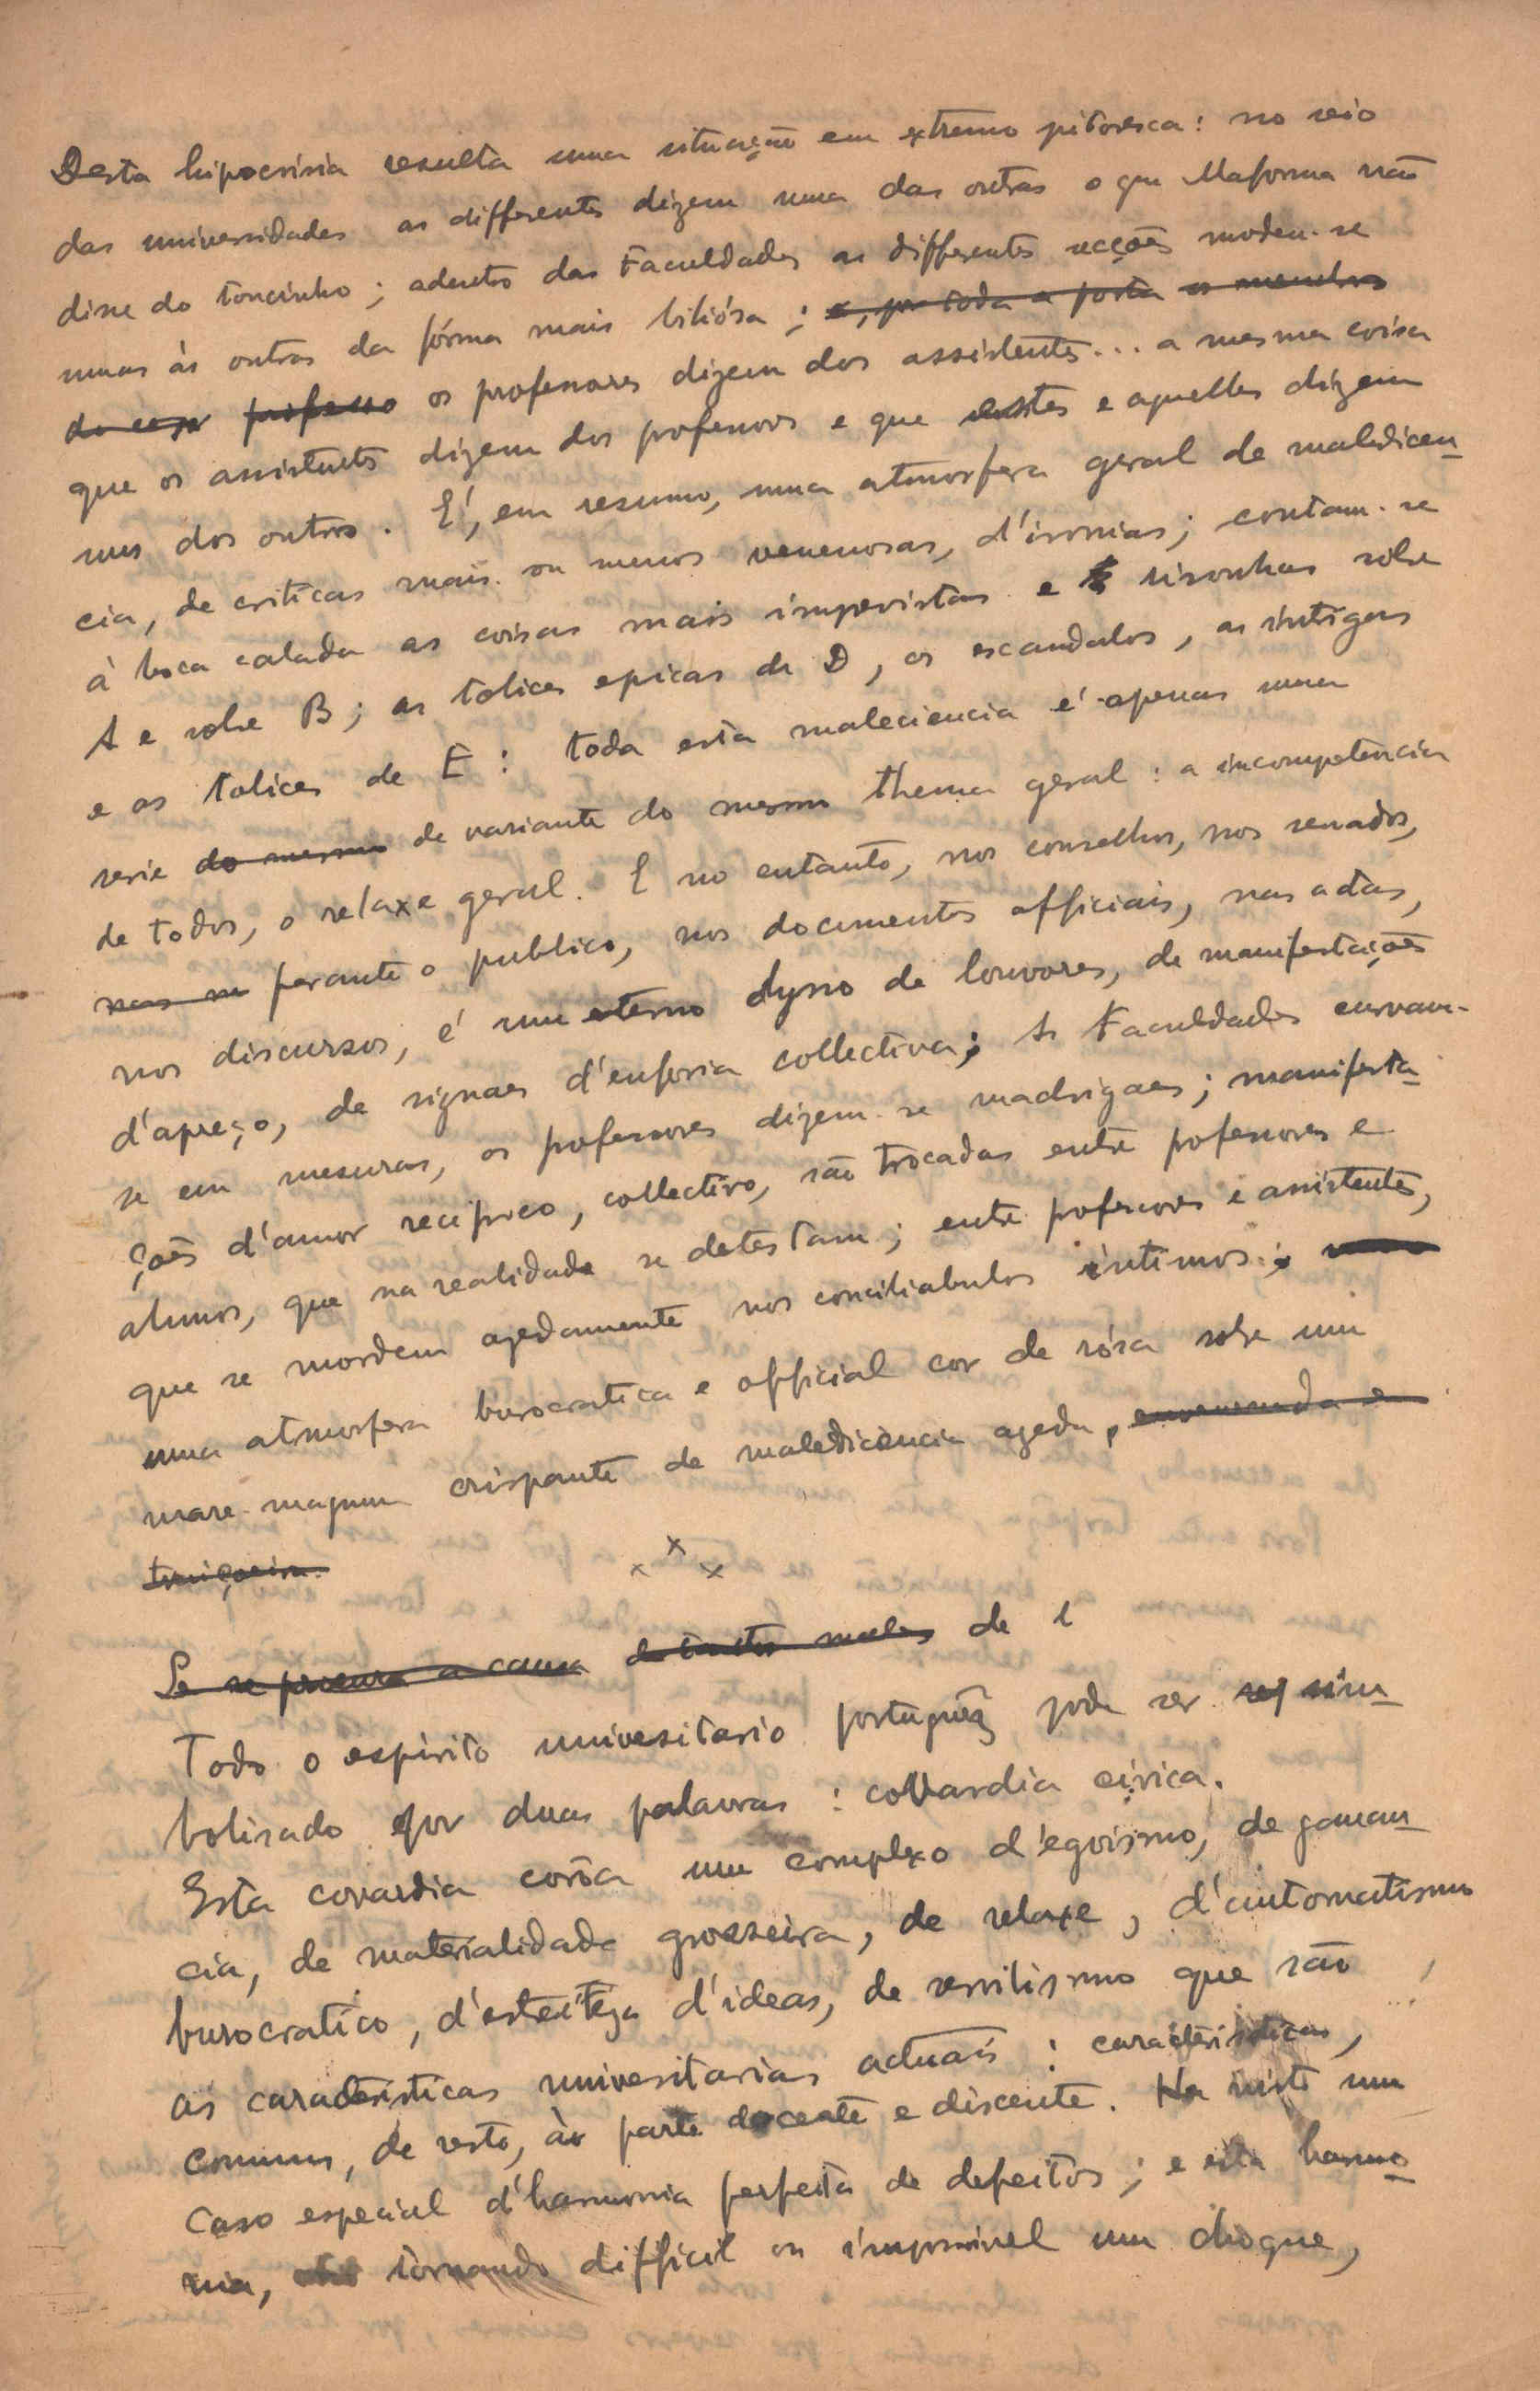 Desta hipocrisia resulta uma situação em extremo pitoresca: no seio
das universidades as differentes dizem uma das outras o que Mafoma não
disse do toucinho; adentro das Faculdades as differentes secções modem-se
umas ás outras da fórma mais biliósa; e, por toda a parte os membros
do corpo professo os professores dizem dos assistentes... a mesma coisa
que os assistentes dizem dos professores e que estes e aquelles dizem
uns dos outros. É, em resumo, uma atmosfera geral de maledicen-
cia, de criticas mais ou menos venenosas, d'ironias; contam-se
à boca calada as coisas mais imprevistas e risonhas sobre
A e sobre B; as tolices epicas de D, os escandalos, as intrigas
e as tolices de E: toda esta maleciencia é apenas uma
serie do mesmo de variante do mesmo thema geral: a incompetencia
de todos, o relaxe geral. E no entanto, nos conselhos, nos senados,
perante o publico, nos documentos officiais, nas actas,
nos discursos, é um eterno dysso de louvores, de manifestações
d'apreço, de signaes d'euforia collectiva; As Faculdades curvam-
se em mesuras, os professores dizem-se madrigaes; manifesta-
ções d'amor reciproco, collectivo, são trocadas entre professores e
alunos, que na realidade se detestam; entre professores e assistentes,
que se mordem azedamente nos conciliabulos intimos;
uma atmosfera burocratica e official cor de rósa sobre um
mare-magnum crispante de maledicencia azeda, envenenada e
traiçoeira.
x x x
Se se procura a causa de tantos males de
Todo o espirito universitario português pode ser sim-
bolisado por duas palavras: covardia civica.
Esta covardia corôa um complexo d'egoismo, de ganan-
cia, de materialidade grosseira, de relaxe, d'automatismo
burocratico, d'estreiteza d'ideas, de servilismo que são
as caracteristicas universitarias actuais: caracteristicas,
comuns, de resto, à parte docente e discente. Ha nisto um
caso especial d'harmonia perfeita de defeitos; e esta harmo-
nia, tornando difficil ou impossivel um choque,